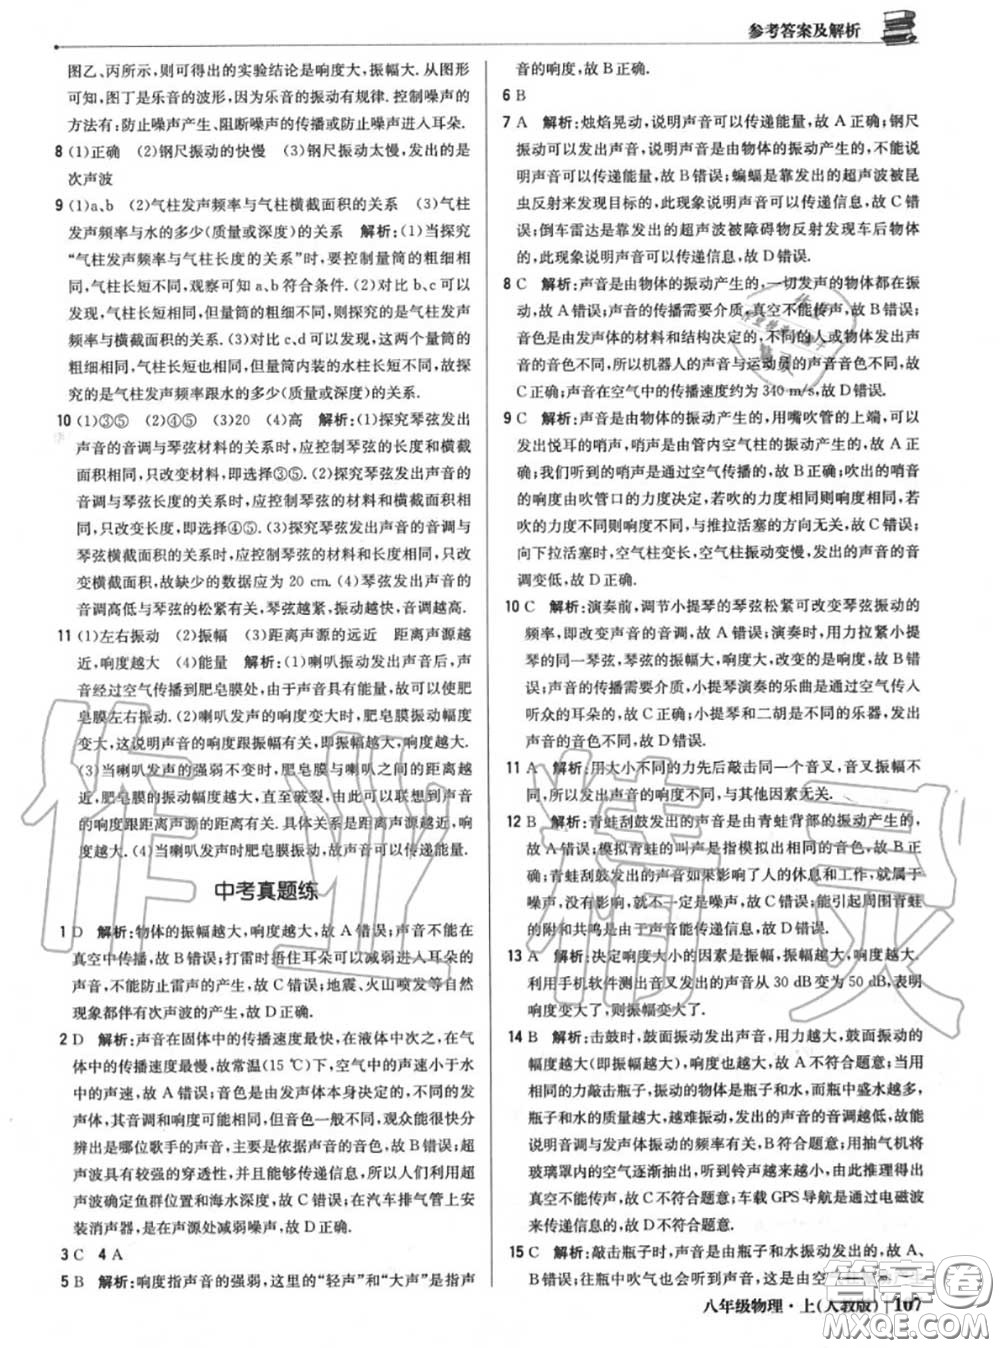 参考答案及解析
图乙、丙所示,则可得出的实验结论是响度大,振幅大. 从图形
可知,图丁是乐音的波形,因为乐音的振动有规律. 控制噪声的
方法有:防止噪声产生、阻断噪声的传播或防止噪声进入耳朵.
8 (1)正确 (2)钢尺振动的快慢 (3)钢尺振动太慢,发出的是
次声波
9 (1)a、b (2)气柱发声频率与气柱横截面积的关系 (3)气柱
发声频率与水的多少(质量或深度)的关系 解析:(1)当探究
“气柱发声频率与气柱长度的关系”时,要控制量筒的粗细相
同,气柱长度不同,观察可知 a、b 符合条件. (2)对比 b、c 可以发
现,气柱长短相同,但量筒的粗细不同,则探究的是气柱发声
频率与横截面积的关系. (3)对比 c、d 可以发现,这两个量筒的
粗细相同,气柱长短也相同,但量筒内装的水柱长短不同,故探
究的是气柱发声频率跟水的多少(质量或深度)的关系.
10 (1)③⑤ (2)④⑤ (3)20 (4)高 解析:(1)探究琴弦发出
声音的音调与琴弦材料的关系时,应控制琴弦的长度和横截
面积相同,只改变材料,即选择③⑤. (2)探究琴弦发出声音的
音调与琴弦长度的关系时,应控制琴弦的材料和横截面积相
同,只改变长度,即选择④⑤. (3)探究琴弦发出声音的音调与
琴弦横截面积的关系时,应控制琴弦的材料和长度相同,只改
变横截面积,故缺少的数据应为 20 cm. (4)琴弦发出声音的
音调高低与琴弦的松紧有关,琴弦越紧,振动越快,音调越高.
11 (1)左右振动 (2)振幅 (3)距离声源的远近 距离声源越
近,响度越大 (4)能量 解析:(1)喇叭振动发出声音后,声
音经过空气传播到肥皂膜处,由于声音具有能量,所以能使肥
皂膜左右振动. (2)喇叭发声的响度变大时,肥皂膜振动幅度
变大,这说明声音的响度跟振幅有关:即振幅越大,响度越大.
(3)当喇叭发声的强弱不变时,肥皂膜与喇叭之间的距离越
近,肥皂膜的振动幅度越大,直至破裂,由此可以联想到声音
的响度跟距离声源的距离有关. 具体关系是距离声源越近,响
度越大. (4)当喇叭发声时肥皂膜振动,表明声音可以传递能量.
中考真题练
1 D 解析:物体的振幅越大,响度越大,故 A 错误;声音不能在
真空中传播,故 B 错误;打雷时捂住耳朵可以减弱进入耳朵的声
音,不能防止雷声的产生,故 C 错误;地震、火山喷发等自然
现象都伴有次声波的产生,故 D 正确.
2 D 解析:声音在固体中的传播速度最快,在液体中次之,在气
体中的传播速度最慢,故常温(15 ℃)下,空气中的声速小于水
中的声速,故 A 错误;音色是由发声体本身决定的,不同的发
声体,其音调和响度可能相同,但音色一般不同,大部分同学分
辨出是哪位歌手的声音,主要是依据声音的音色,故 B 错误;超
声波具有较强的穿透性,并且可以传递信息,故人们可以利用
超声波确定鱼群位置和海水深度,故 C 错误;在汽车排气管上安
装消声器,是在声源处减弱噪声,故 D 正确.
3 C 4 A
5 B 解析:响度指声音的强弱,这里的“轻声”和“大声”是指声
音的响度,故 B 正确.
6 B
7 A 解析:烛焰晃动,说明声音可以传递能量,故 A 正确;钢尺
振动可以发出声音,说明声音是由物体的振动产生的,不能说
明声音可以传递信息,故 B 错误;蝙蝠是靠发出的超声波被昆
虫反射来发现目标的,此现象说明声音可以传递信息,故 C 错
误;倒车雷达是靠发出的超声波被障碍物反射发现车后物体
的,此现象说明声音可以传递信息,故 D 错误.
8 C 解析:声音是由物体的振动产生的,一切发声的物体都在振
动,故 A 错误;声音的传播需要介质,真空不能传声,故 B 错误;
音色是由发声体的材料和结构决定的,不同发声体的音色不
同,所以机器人的声音与运动员的声音音色不同,故
C 正确;声音在空气中的传播速度约为 340 m/s,故 D 错误.
9 C 解析:声音是由物体的振动产生的,用嘴吹管的上端,可以
发出悦耳的哨声,哨声是由管内空气柱的振动产生的,故 A 正
确;我们听到的哨声是通过空气传播的,故 B 正确;吹出的哨音
的响度由吹管口的力度决定,若吹的力度相同则响度相同,若
吹的力度不同则响度不同,与推拉活塞的方向无关,故 C 错误;
向下拉活塞时,空气柱变长,空气柱振动变慢,发出的声音的音
调变低,故 D 正确.
10 C 解析:演奏前,调节小提琴的琴弦松紧可改变琴弦振动的
频率,即改变声音的音调,故 A 错误;演奏时,用力拉紧小提琴
的同一琴弦,琴弦振幅大,响度大,改变的是响度,故 B 错误;
声音的传播需要介质,小提琴演奏的乐曲是通过空气传入
听众的耳朵的,故 C 正确;小提琴和二胡是不同的乐器,发出
声音的音色不同,故 D 错误.
11 A 解析:用大小不同的力先后敲击同一个音叉,音叉振幅不
同,所以发出声音的响度不同,与其他因素无关.
12 B 解析:青蛙刮鼓发出的声音是由青蛙背部的振动产生的,
故 A 错误;模拟青蛙的叫声是指模拟出相同的音色,故 B 正
确;青蛙刮鼓发出的声音如果影响了人的休息和工作,就属于
噪声,没有影响,就不一定是噪声,故 C 错误;能引起周围青蛙
的附和共鸣是由于声音能传递信息,故 D 错误.
13 A 解析:决定响度大小的因素是振幅,振幅越大,响度越大.
利用手机软件测出音叉发出的声音从 30 dB 变为 50 dB,表明
响度变大了,所以,振幅变大了.
14 B 解析:击鼓时,鼓面振动发出声音,用力越大,鼓面振动的
幅度越大(即振幅越大),响度也越大,故 A 不符合题意;当用
相同的力敲击瓶子,振动的物体是瓶子和水,而瓶中盛水越多,
瓶子和水的质量越大,越难振动,发出的声音的音调越低,故能
说明音调与发声体振动的频率有关,B 符合题意;用抽气机将
玻璃罩内的空气逐渐抽出,听到铃声越来越小,最后得出
真空不能传声,故 C 不符合题意;车载 GPS 导航是通过电磁波
来传递信息的,故 D 不符合题意.
15 C 解析:敲击瓶子时,声音是由瓶子和水振动发出的,故 A、
B 错误;往瓶中吹气也会发出声音,这声音是由空
八年级物理·上(人教版) 107
作业精灵
答案圈
MXQE.COM